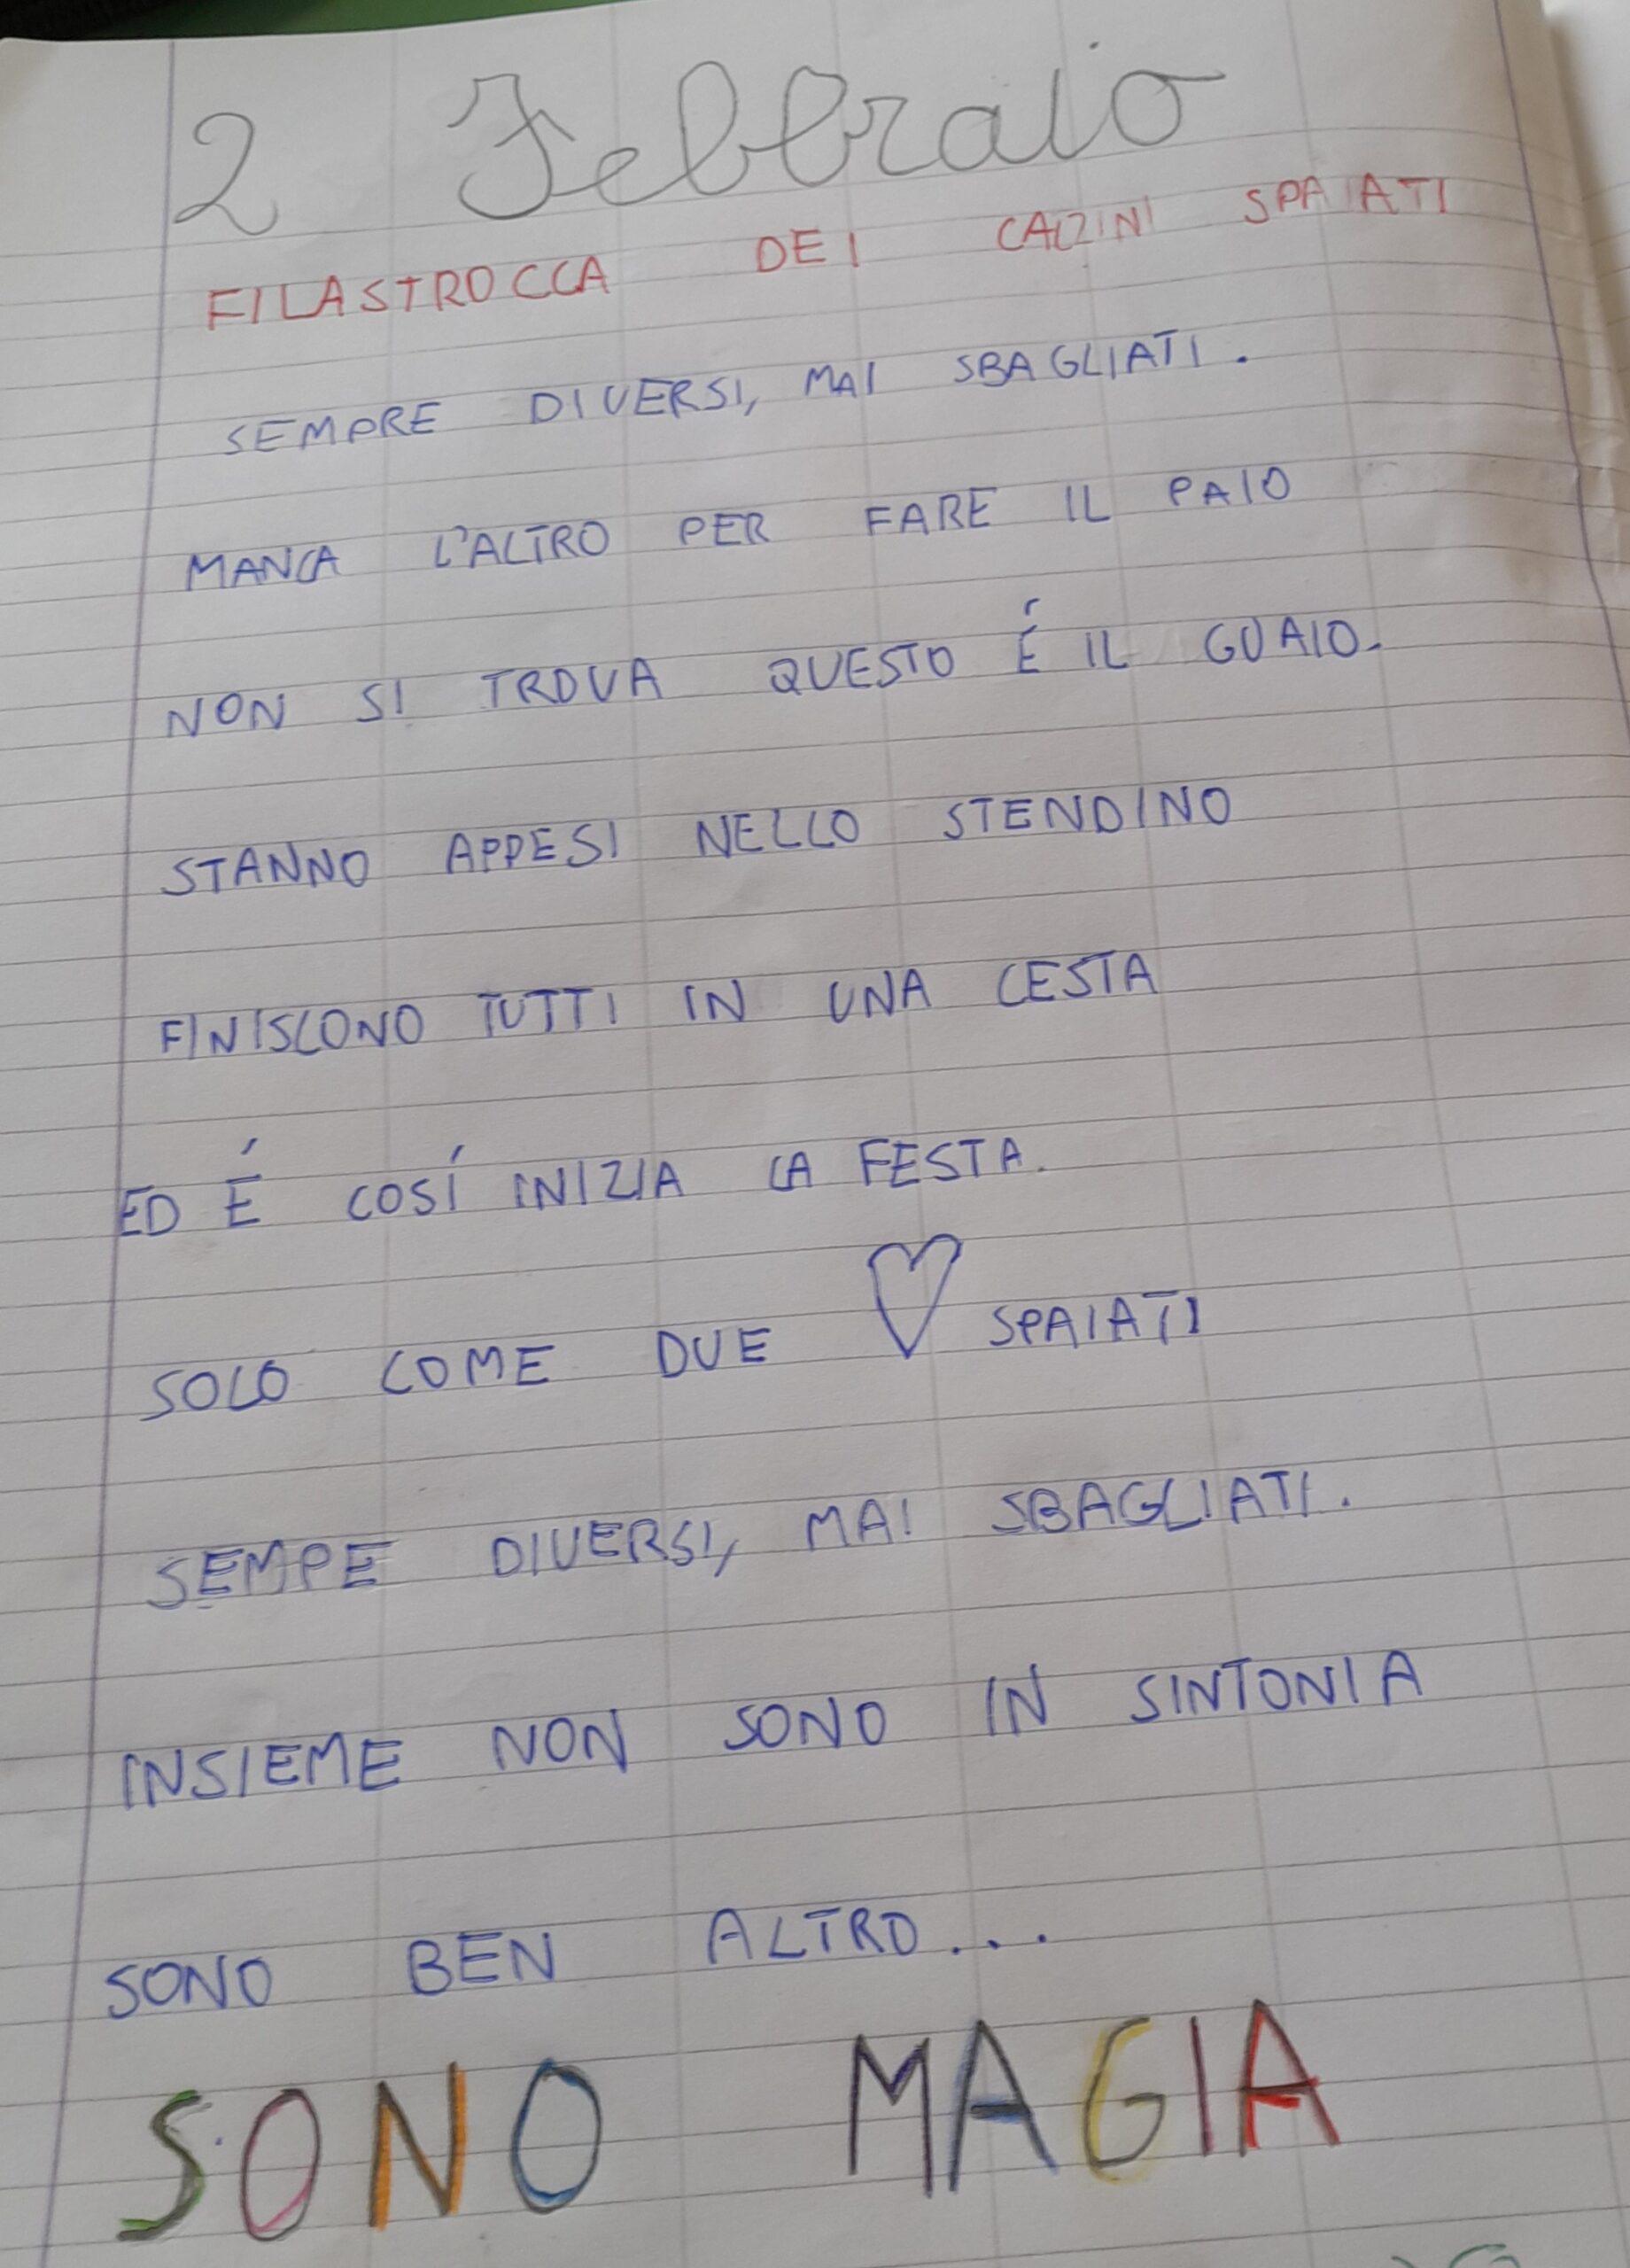 2 Febbraio
FILASTROCCA DEI CALZINI SPAIATI
SEMPRE DIVERSI, MAI SBAGLIATI.
MANCA L'ALTRO PER FARE IL PAIO
NON SI TROVA QUESTO É IL GUAIO.
STANNO APPESI NELLO STENDINO
FINISCONO TUTTI IN UNA CESTA
ED É COSÍ INIZIA LA FESTA.
SOLO COME DUE ♡ SPAIATI
SEMPE DIVERSI, MAI SBAGLIATI.
INSIEME NON SONO IN SINTONIA
SONO BEN ALTRO...
SONO MAGIA